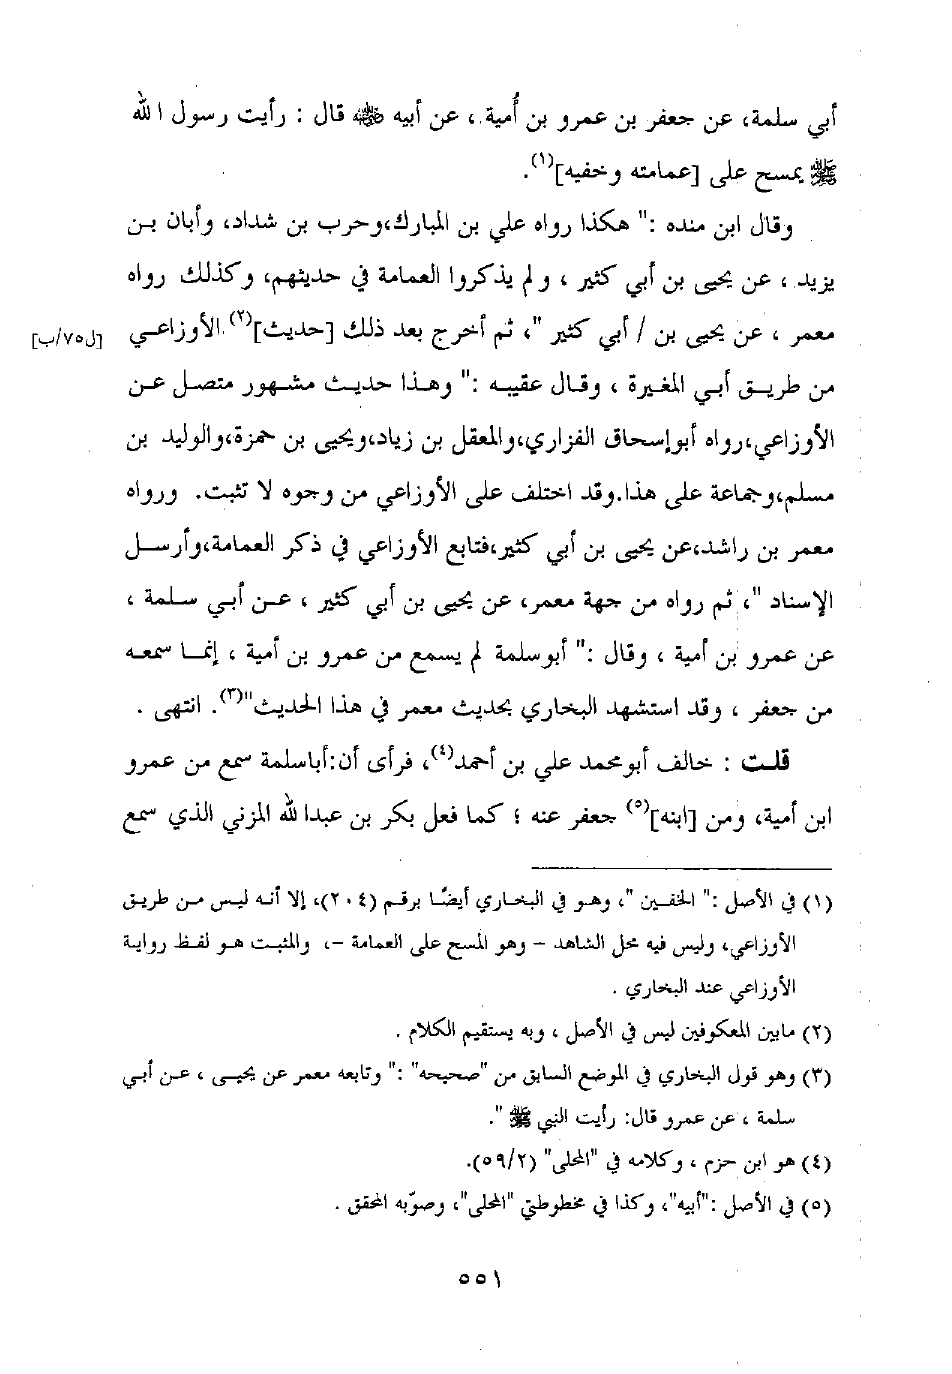 أبي سلمة، عن جعفر بن عمرو بن أُمية ، عن أبيه ﷺ قال : رأيت رسول الله
ﷺ يمسح على [عمامته وخفيه](١).
وقال ابن منده :" هكذا رواه علي بن المبارك،وحرب بن شداد، وأبان بن
يزيد ، عن يحيى بن أبي كثير ، و لم يذكروا العمامة في حديثهم، وكذلك رواه
معمر ، عن يحيى بن / أبي كثير "، ثم أخرج بعد ذلك [حديث](٢) الأوزاعي
[ل٧٥/ب]
من طريق أبي المغيرة ، وقال عقيبه :" وهذا حديث مشهور متصل عن
الأوزاعي،رواه أبوإسحاق الفزاري،والمعقل بن زياد،ويحيى بن حمزة،والوليد بن
مسلم،وجماعة على هذا.وقد اختلف على الأوزاعي من وجوه لا تثبت. ورواه
معمر بن راشد،عن يحيى بن أبي كثير،فتابع الأوزاعي في ذكر العمامة،وأرسل
الإسناد "، ثم رواه من جهة معمر، عن يحيى بن أبي كثير ، عن أبي سلمة ،
عن عمرو بن أمية ، وقال :" أبوسلمة لم يسمع من عمرو بن أمية ، إنما سمعه
من جعفر ، وقد استشهد البخاري بحديث معمر في هذا الحديث"(٣). انتهى .
قلت : خالف أبومحمد علي بن أحمد(٤)، فرأى أن:أباسلمة سمع من عمرو
ابن أمية، ومن [ابنه](٥) جعفر عنه ؛ كما فعل بكر بن عبدالله المزني الذي سمع
(١) في الأصل :" الخفين "، وهو في البخاري أيضًا برقم (٢٠٤)، إلا أنه ليس من طريق
الأوزاعي، وليس فيه محل الشاهد – وهو المسح على العمامة –، والمثبت هو لفظ رواية
الأوزاعي عند البخاري .
(٢) مابين المعكوفين ليس في الأصل ، وبه يستقيم الكلام .
(٣) وهو قول البخاري في الموضع السابق من "صحيحه" :" وتابعه معمر عن يحيى ، عن أبي
سلمة ، عن عمرو قال: رأيت النبي ﷺ ".
(٤) هو ابن حزم ، وكلامه في "المحلى" (٥٩/٢).
(٥) في الأصل :"أبيه"، وكذا في مخطوطتي "المحلى"، وصوّبه المحقق .
٥٥١